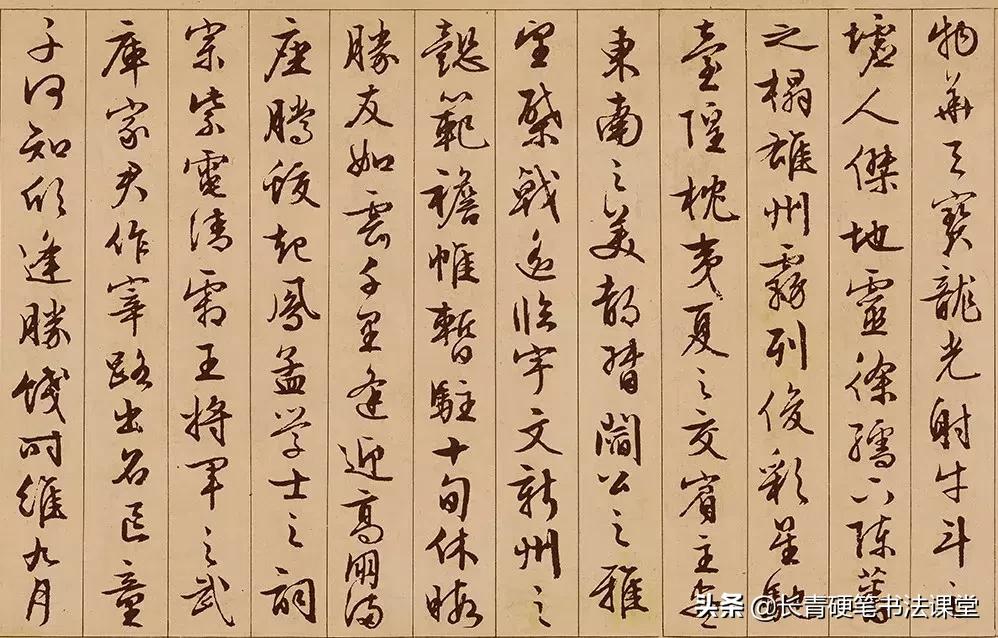 物華天寶龍光射牛斗之
墟人傑地靈徐孺下陳蕃
之榻雄州霧列俊彩星馳
臺隍枕夷夏之交賓主盡
東南之美都督閻公之雅
望棨戟遙臨宇文新州之
懿範襜帷暫駐十旬休暇
勝友如雲千里逢迎高朋滿
座騰蛟起鳳孟学士之詞
宗紫電清霜王將軍之武
庫家君作宰路出名區童
子何知躬逢勝餞时維九月
头条 @长青硬笔书法课堂